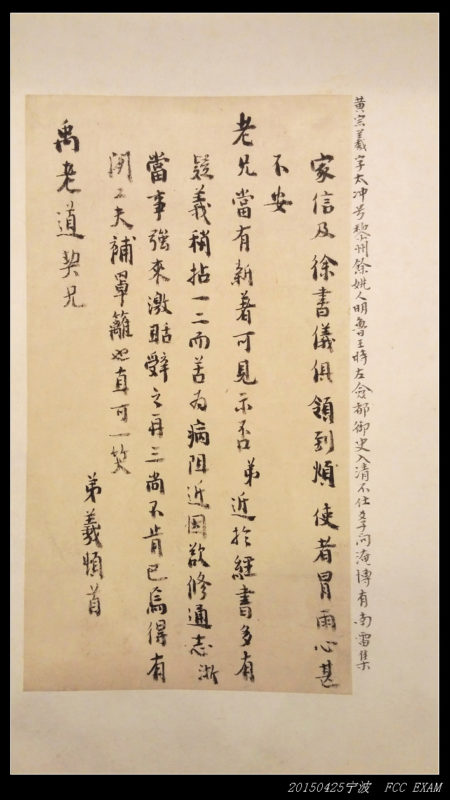 黄宗羲字太冲号棃州餘姚人明魯王時左僉都御史入清不仕學问淹博有南雷集
家信及徐書儀俱領到煩使者冒雨心甚
不安
老兄當有新著可見示否弟近於經書多有
疑義稍拈一二而苦為病阻近因欲修通志浙
當事強來激聒辭之再三尚不肯已焉得有
閒工夫補罩籬也真可一笑
弟羲頓首
禹老道契兄
20150425宁波 FCC EXAM